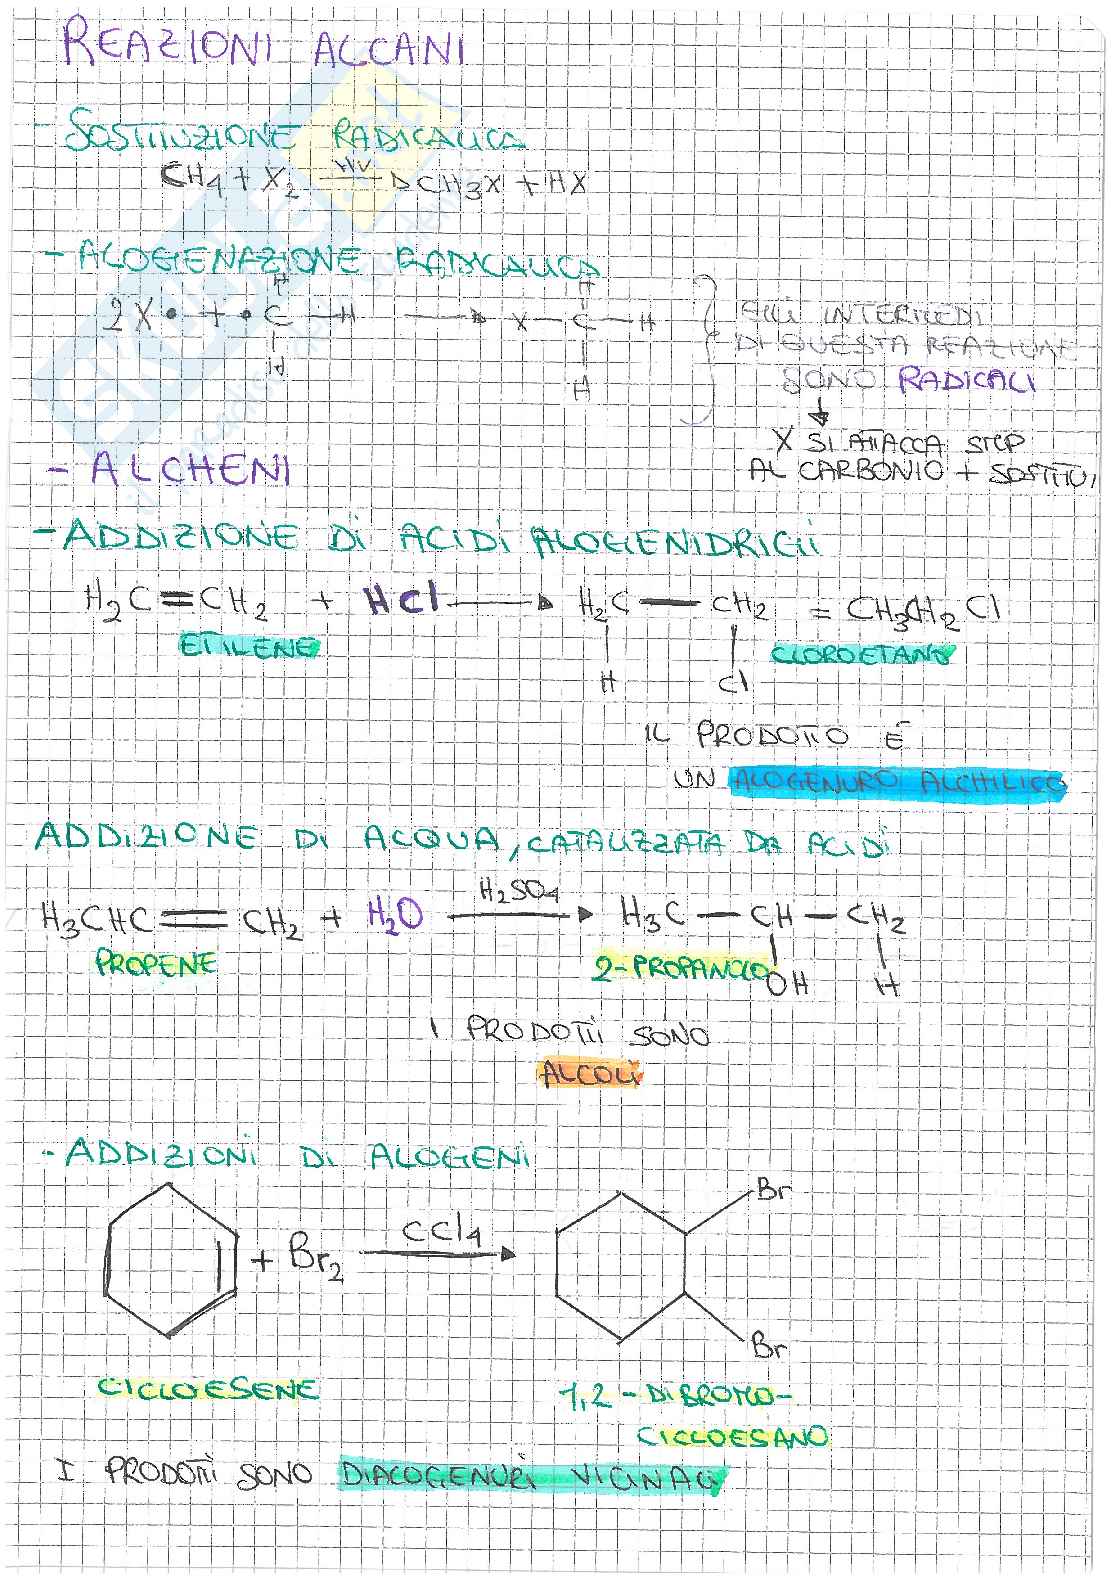 REAZIONI ALCANI
- SOSTITUZIONE RADICALICA
CH4 + X2 —hν→ CH3X + HX
- ALOGENAZIONE RADICALICA
H H
2X• + •C—H → X—C—H
H H
GLI INTERMEDI
DI QUESTA REAZIONE
SONO RADICALI
↓
X SI ATTACCA STEP
AL CARBONIO + SOSTITU,
- ALCHENI
- ADDIZIONE DI ACIDI ALOGENIDRICI
H2C=CH2 + HCl → H2C—CH2 = CH3CH2Cl
ETILENE CLOROETANO
H Cl
IL PRODOTTO È
UN ALOGENURO ALCHILICO
ADDIZIONE DI ACQUA, CATALIZZATA DA ACIDI
H3CHC=CH2 + H2O —H2SO4→ H3C—CH—CH2
PROPENE 2-PROPANOLO OH H
I PRODOTTI SONO
ALCOLI
- ADDIZIONI DI ALOGENI
+ Br2 —CCl4→ Br
Br
CICLOESENE 1,2-DIBROMO-
CICLOESANO
I PRODOTTI SONO DIALOGENURI VICINALI